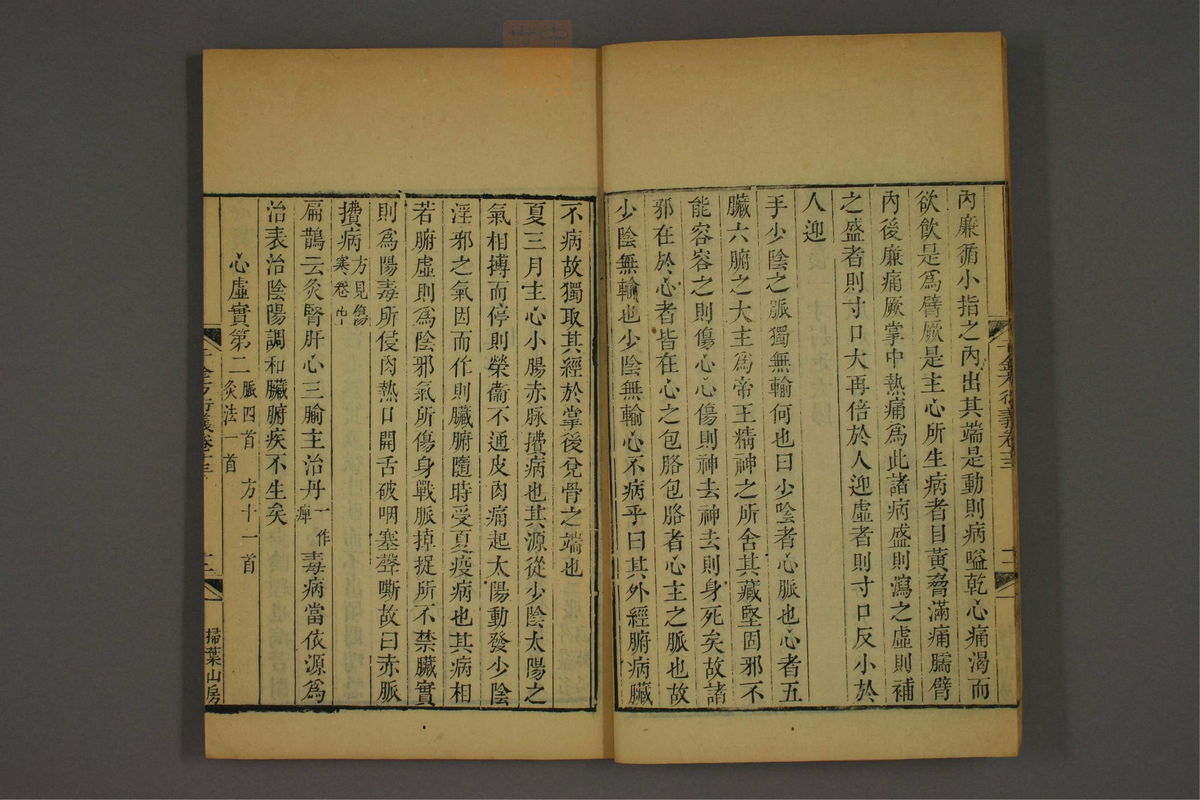 內廉循小指之內出其端是動則病嗌乾心痛渴而
欲飲是爲臂厥是主心所生病者目黃脅滿痛臑臂
內後廉痛厥掌中熱痛爲此諸病盛則瀉之虛則補
之盛者則寸口大再倍於人迎虛者則寸口反小於
人迎
手少陰之脈獨無輸何也曰少陰者心脈也心者五
臟六腑之大主爲帝王精神之所舍其藏堅固邪不
能容容之則傷心心傷則神去神去則身死矣故諸
邪在於心者皆在心之包胳包胳者心主之脈也故
少陰無輸也少陰無輸心不病乎曰其外經腑病臟
不病故獨取其經於掌後兌骨之端也
夏三月主心小腸赤脉攢病也其源從少陰太陽之
氣相搏而停則榮衞不通皮肉痛起太陽動發少陰
淫邪之氣因而作則臟腑隨時受夏疫病也其病相
若腑虛則爲陰邪氣所傷身戰脈掉捉所不禁臟實
則爲陽毒所侵肉熱口開舌破咽塞聲嘶故曰赤脈
攢病方見傷寒卷中
扁鵲云灸腎肝心三腧主治丹一作癉毒病當依源爲
治表治陰陽調和臟腑疾不生矣
心虛實第二脈四首 方十一首 灸法一首
掃葉山房